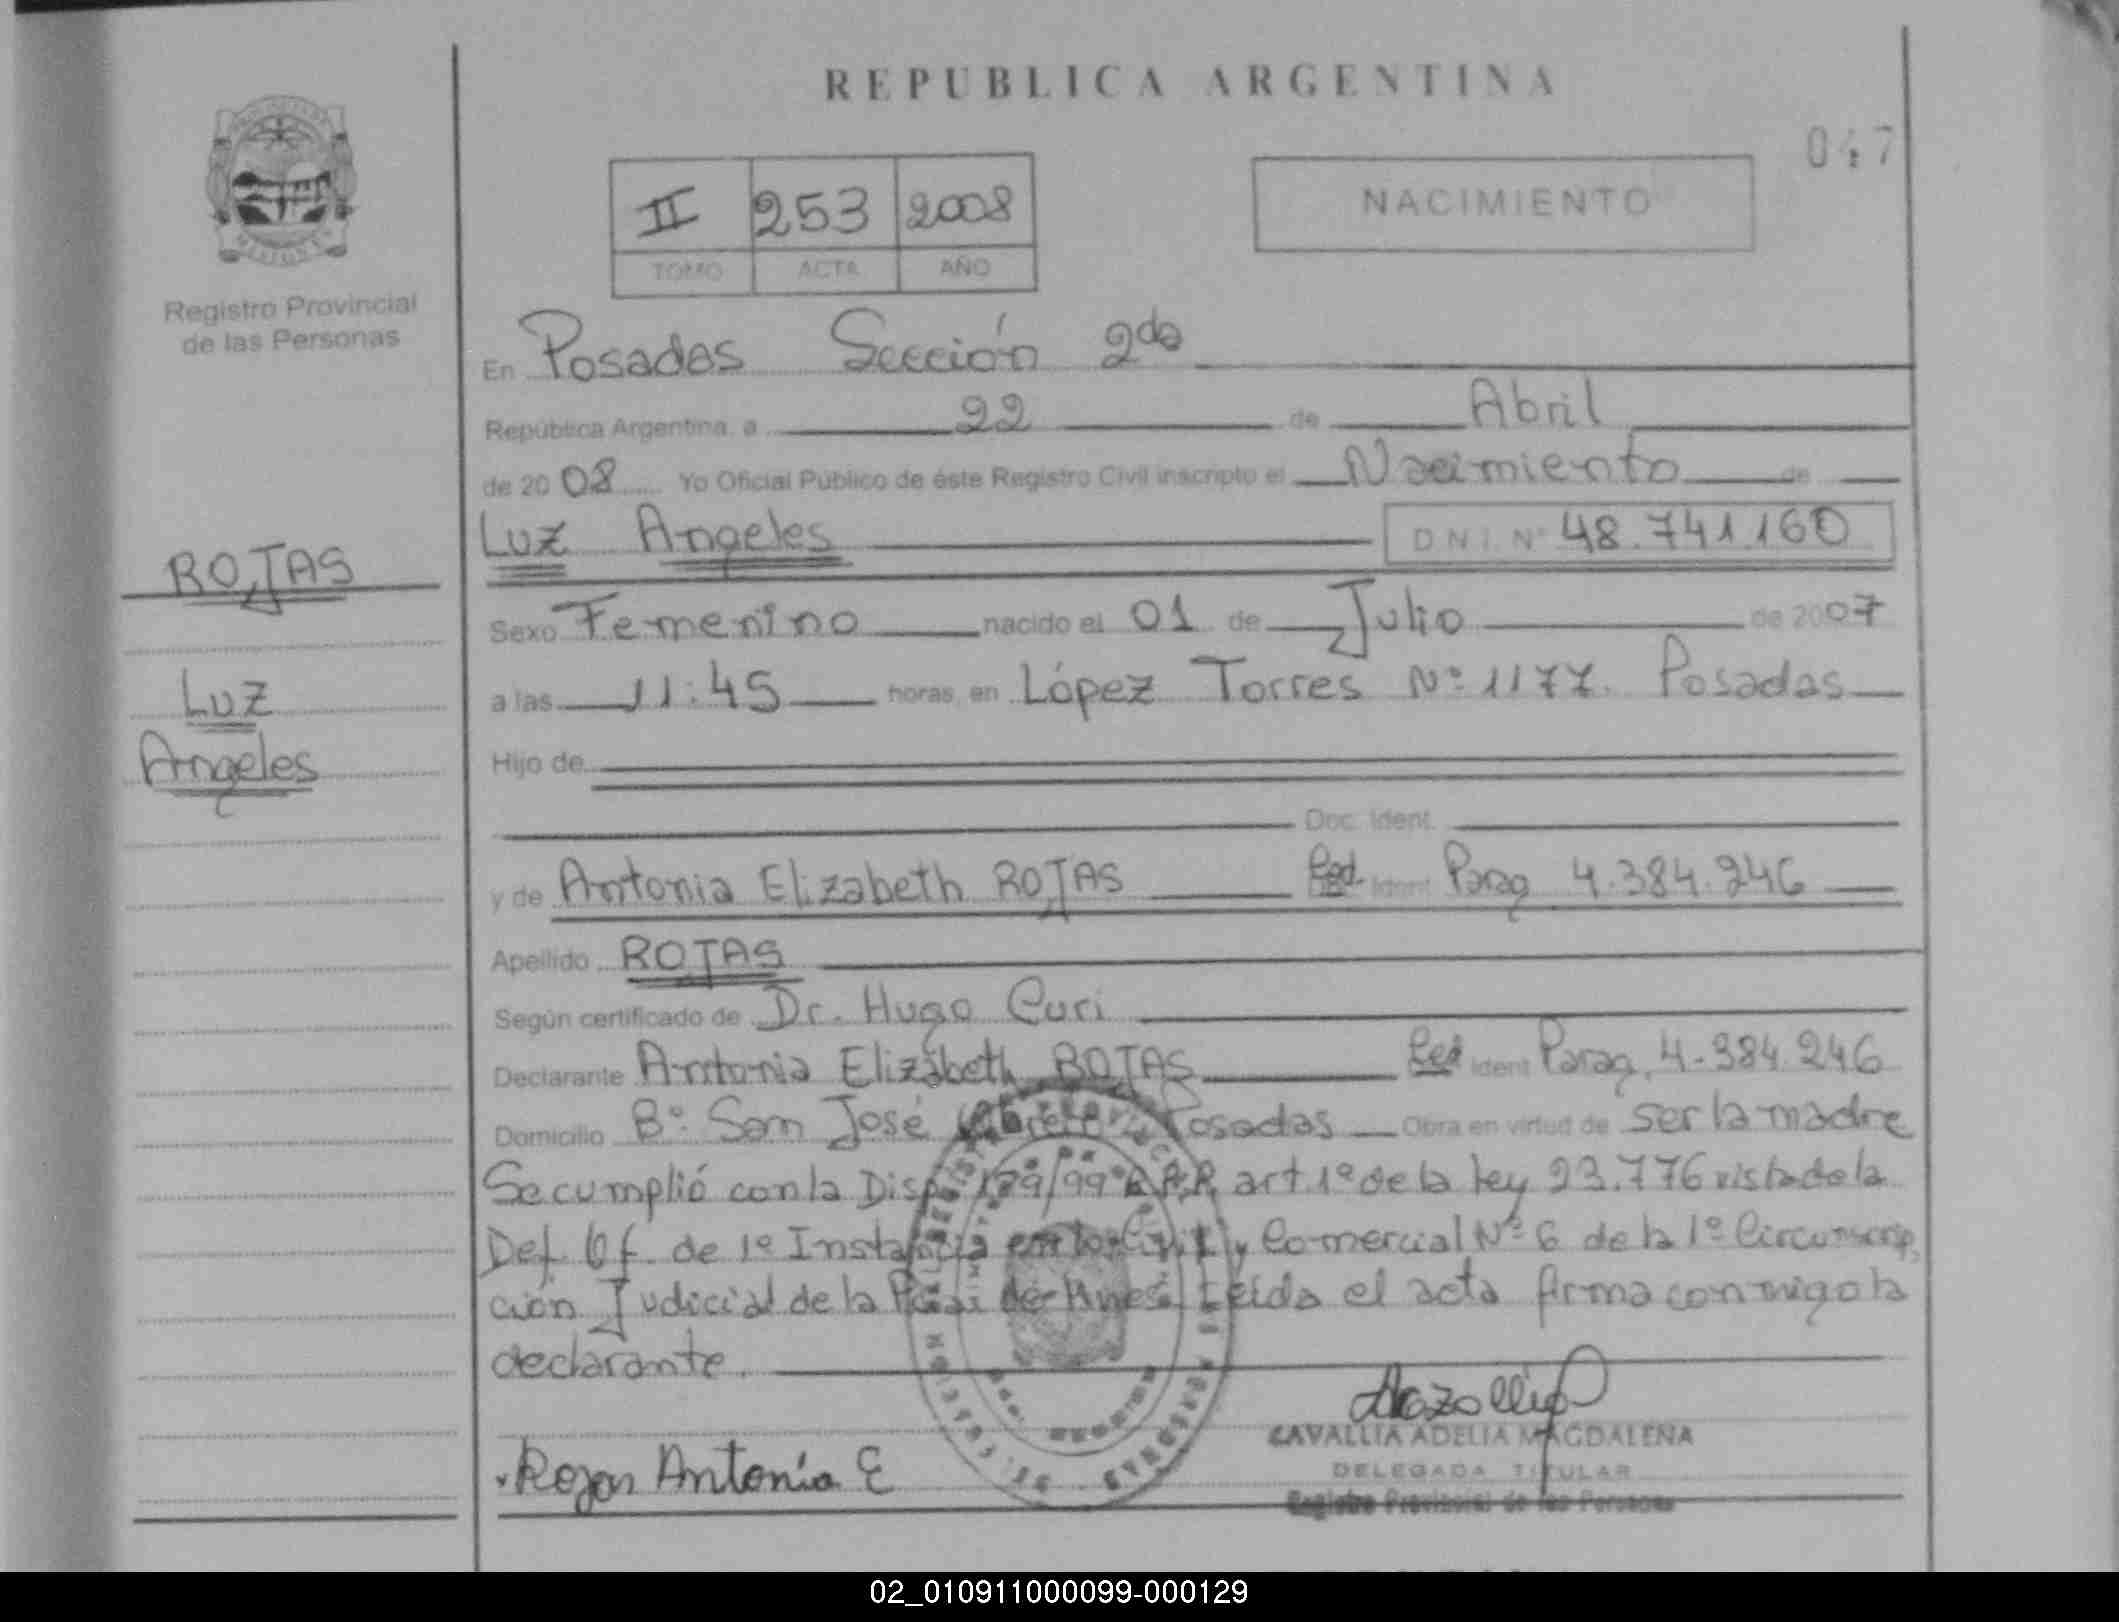 REPUBLICA ARGENTINA
047
II 253 2008
TOMO ACTA AÑO
NACIMIENTO
Registro Provincial
de las Personas
En Posadas Sección 2da
República Argentina, a 22 de Abril
de 2008 Yo Oficial Público de éste Registro Civil inscripto el Nacimiento de
Luz Angeles D.N.I. Nº 48.741.160
ROJAS
Luz
Angeles
Sexo Femenino nacido el 01 de Julio de 2007
a las 11:45 horas, en López Torres Nº 1177. Posadas
Hijo de
Doc. Ident.
y de Antonia Elizabeth ROJAS Ced. Ident. Parag 4.384.246
Apellido ROJAS
Según certificado de Dr. Hugo Curi
Declarante Antonia Elizabeth ROJAS Ced Ident Parag. 4.384.246
Domicilio Bº San José Posadas Obra en virtud de ser la madre
Se cumplió con la Disp. 129/99 art. 1º de la ley 23.776 vista de la
Def. Of. de 1º Instancia en lo Civil y Comercial Nº 6 de la 1º Circunscrip
ción Judicial de la Leida el acta firma conmigo la
declarante.
Rojas Antonia E
CAVALLIA ADELIA MAGDALENA
DELEGADA TITULAR
Registro Provincial de las Personas
02_010911000099-000129